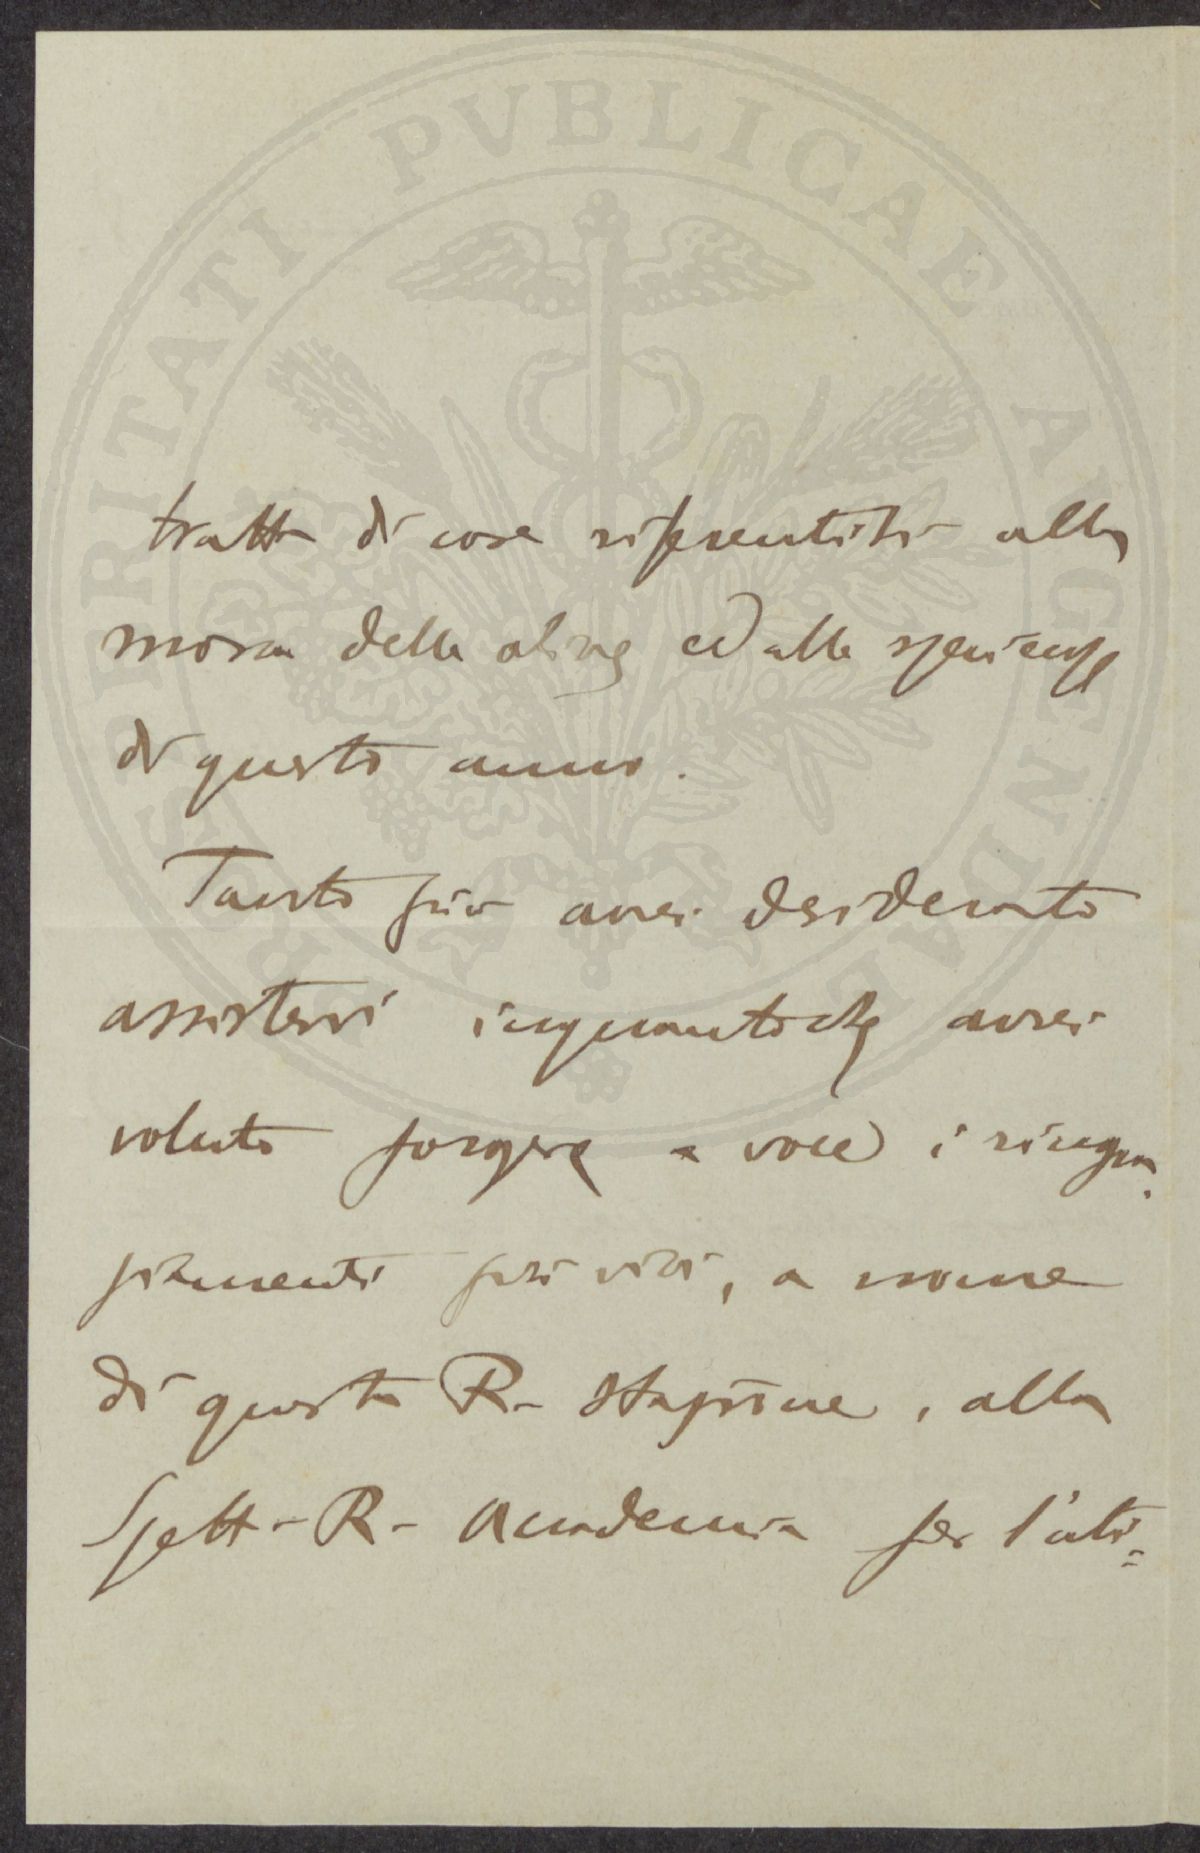 PROSPERITATI PVBLICAE AVGENDAE
tratta di cose riferentisi alla
mosca delle olive ed alle sperienze
di questo anno.
Tanto più avrei desiderato
assistervi inquantochè avrei
voluto porgere a voce i ringra-
ziamenti più vivi, a nome
di questa R. Stazione, alla
Spett. R. Accademia per l'ati=